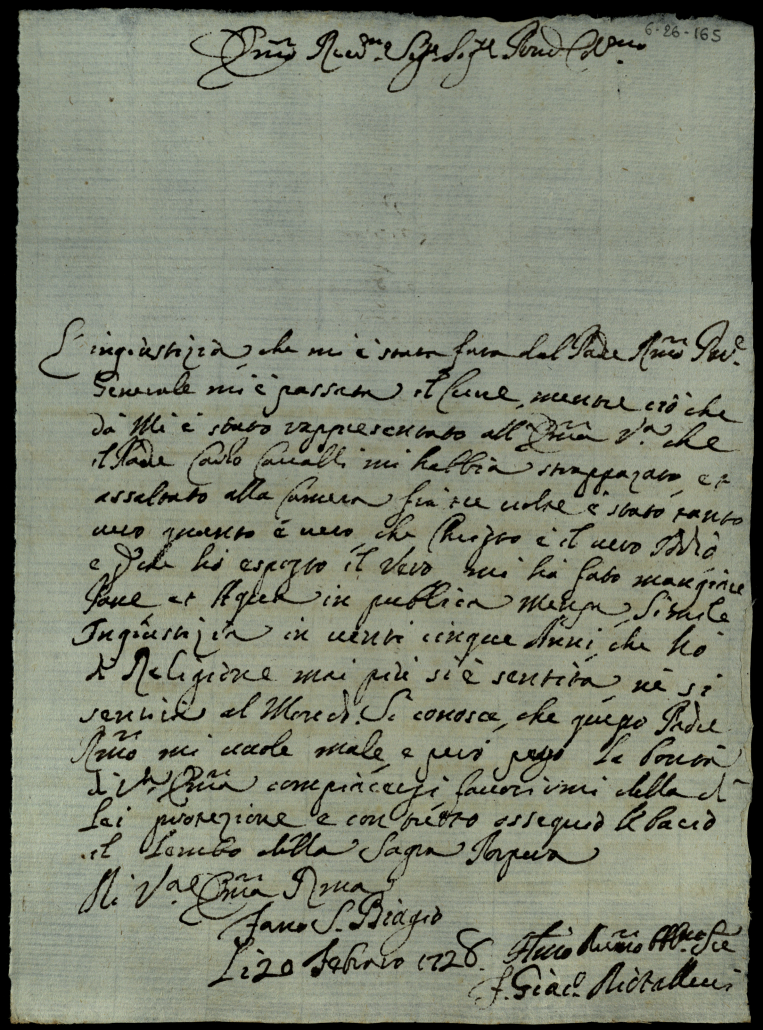 6-26-165
Em̃o Re.mo Sig.r Sig.r Pron Col.mo
L'ingiustizia, che mi è stata fatta dal Padre Rm̃o Pre.
Generale mi è passata il Cuore, mentre ciò che
da Mi è stato rappresentato all'Em̃a V.a che
il Padre Carlo Cavalli mi habbia strappazato, et
assaltato alla Camera fra tre volte è stato tanto
vero quanto è vero, che Christo è il vero Iddio
e d'ove ho esposto il Vero mi ha fatto mangiare
Pane et Aqua in publica Mensa, Simile
Ingiustizia in venti cinque Anni, che ho
di Religione mai più si è sentita, nè si
sentirà al Mondo. Si conosce, che questo Padre
Rm̃o mi vuole male, e però prego la bontà
di V.a Em̃a compiacersi favorirmi della di
Lei protezione e con tutto ossequio le bacio
il Lembo della Sagra Porpora
Di V.a Em̃a Rma
Fano S. Biagio
Li 20 Febraro 1726.
F. Giac.